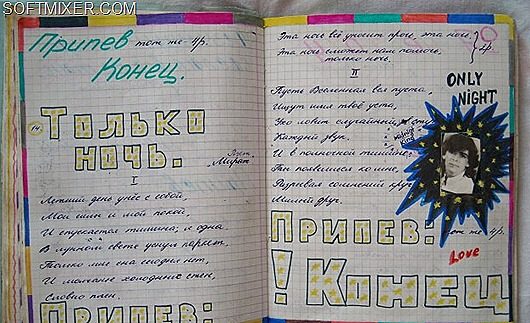 SOFTMIXER.COM
Припев тот же 4р.
Конец.
14
Только
ночь.
Поёт
Мираж.
I
Летний день унёс с собой,
Мои сны и мой покой,
И опускается тишина, я одна
В лунном свете уснул паркет,
Только мне сна сегодня нет,
И молчание холодных стен,
Словно плен.
Припев:
Эта ночь всё уносит прочь, эта ночь.
Эта ночь сможет нам помочь,
только ночь.
4р.
II
Пусть Вселенная вся пуста,
Ищут имя твоё уста,
Ухо ловит случайный сту
Каждый звук.
И в полночной тишине
Ты появишься ко мне,
Разрывая сомнений круг
Милый друг.
ONLY
NIGHT
Припев:
тот же 4р.
Love
! Конец